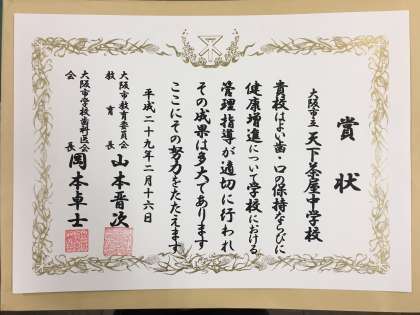 賞状
大阪市立 天下茶屋中学校
貴校はよい歯・口の保持ならびに
健康増進について学校における
管理指導が適切に行われ
その成果は多大であります
ここにその努力をたたえます
平成二十九年二月十六日
大阪市教育委員会
教育長 山本晋次
大阪市学校歯科医会
会長 岡本卓士